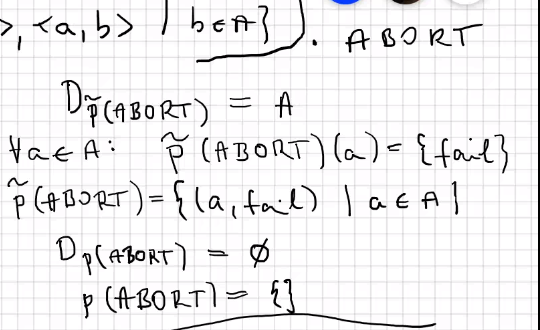 >, <a, b> | b ∈ A} ). ABORT
D_p̃(ABORT) = A
∀a ∈ A: p̃(ABORT)(a) = {fail}
p̃(ABORT) = {(a, fail) | a ∈ A}
D_p(ABORT) = ∅
p(ABORT) = {}